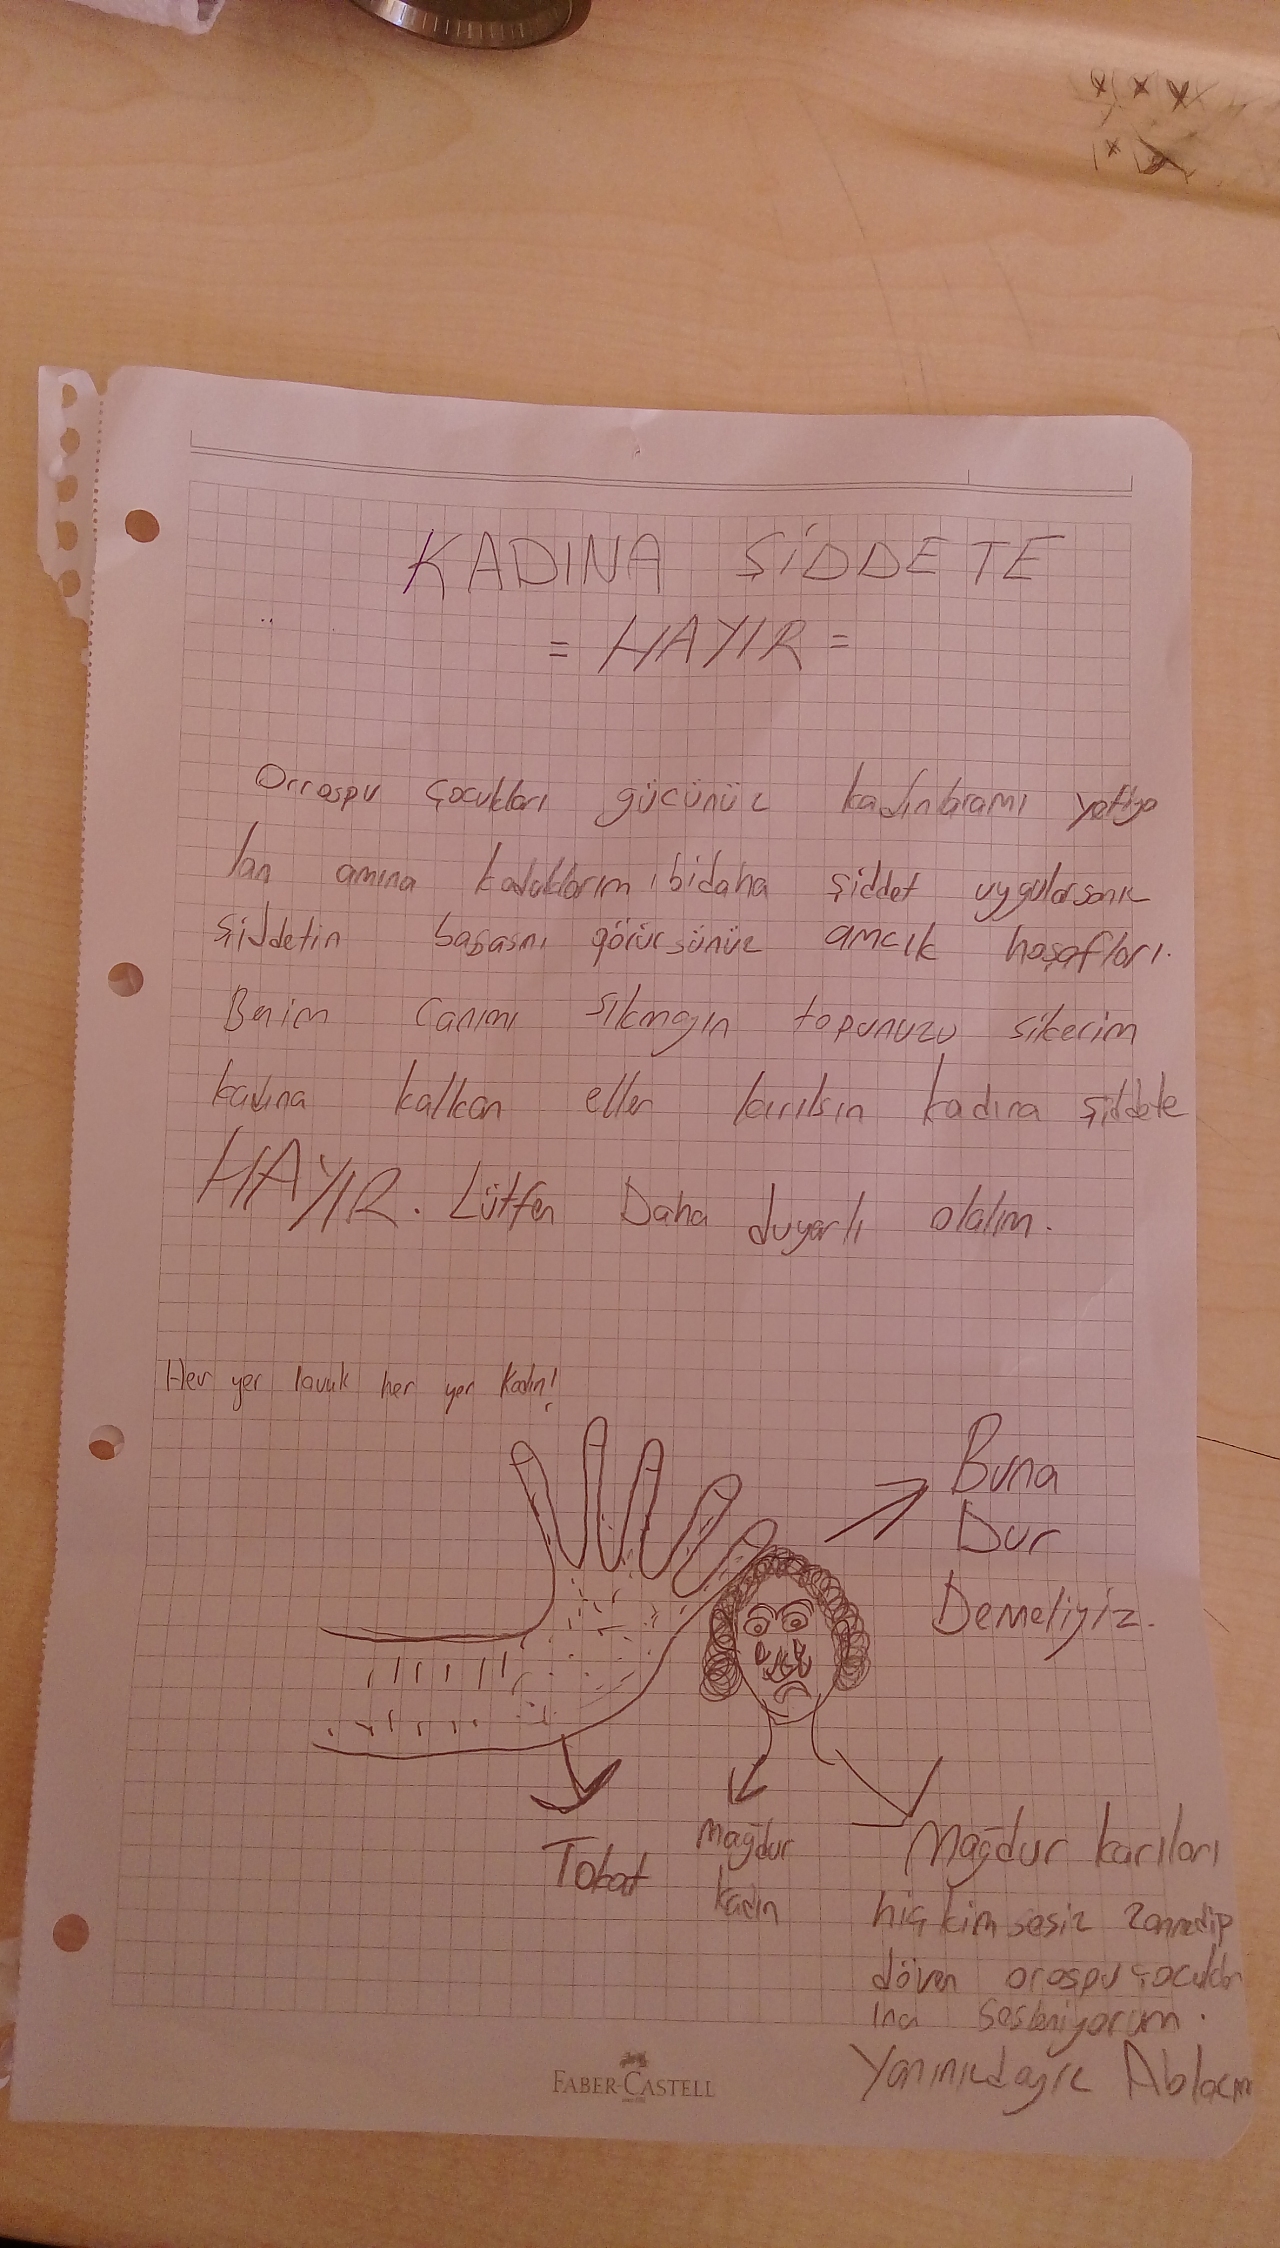 KADINA ŞİDDETE
= HAYIR =
Orrospu çocukları gücünüz kadınlaramı yetiyo
lan amına koduklarım, bidaha şiddet uygularsanız
şiddetin babasını görürsünüz amcık hoşafları.
Benim canımı sıkmayın topunuzu sikerim
kadına kalkan eller kırılsın kadına şiddete
HAYIR. Lütfen Daha duyarlı olalım.
Her yer lavuk her yer Kadın!
Buna
Dur
Demeliyiz.
Tokat
Mağdur
kadın
Mağdur karıları
hiç kimsesiz zannedip
döven orospu çocukları
ına sesleniyorum.
Yanınızdayız Ablacım
FABER-CASTELL